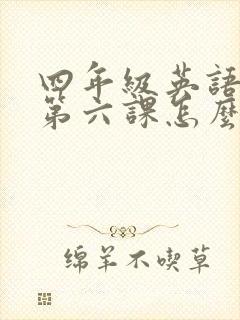 四年級英語
第六課怎麼
绵羊不喫草